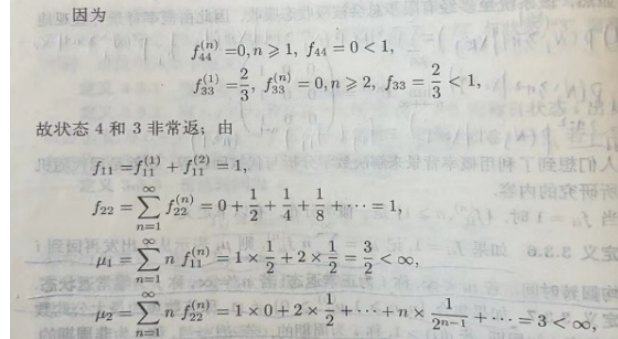 因为
f₄₄⁽ⁿ⁾=0,n⩾1, f₄₄=0<1,
f₃₃⁽¹⁾=2/3, f₃₃⁽ⁿ⁾=0,n⩾2, f₃₃=2/3<1,
故状态 4 和 3 非常返；由
f₁₁=f₁₁⁽¹⁾+f₁₁⁽²⁾=1,
f₂₂=∑_{n=1}^{∞} f₂₂⁽ⁿ⁾=0+1/2+1/4+1/8+⋯=1,
μ₁=∑_{n=1}^{∞} n f₁₁⁽ⁿ⁾=1×1/2+2×1/2=3/2<∞,
μ₂=∑_{n=1}^{∞} n f₂₂⁽ⁿ⁾=1×0+2×1/2+⋯+n×1/2ⁿ⁻¹+⋯=3<∞,